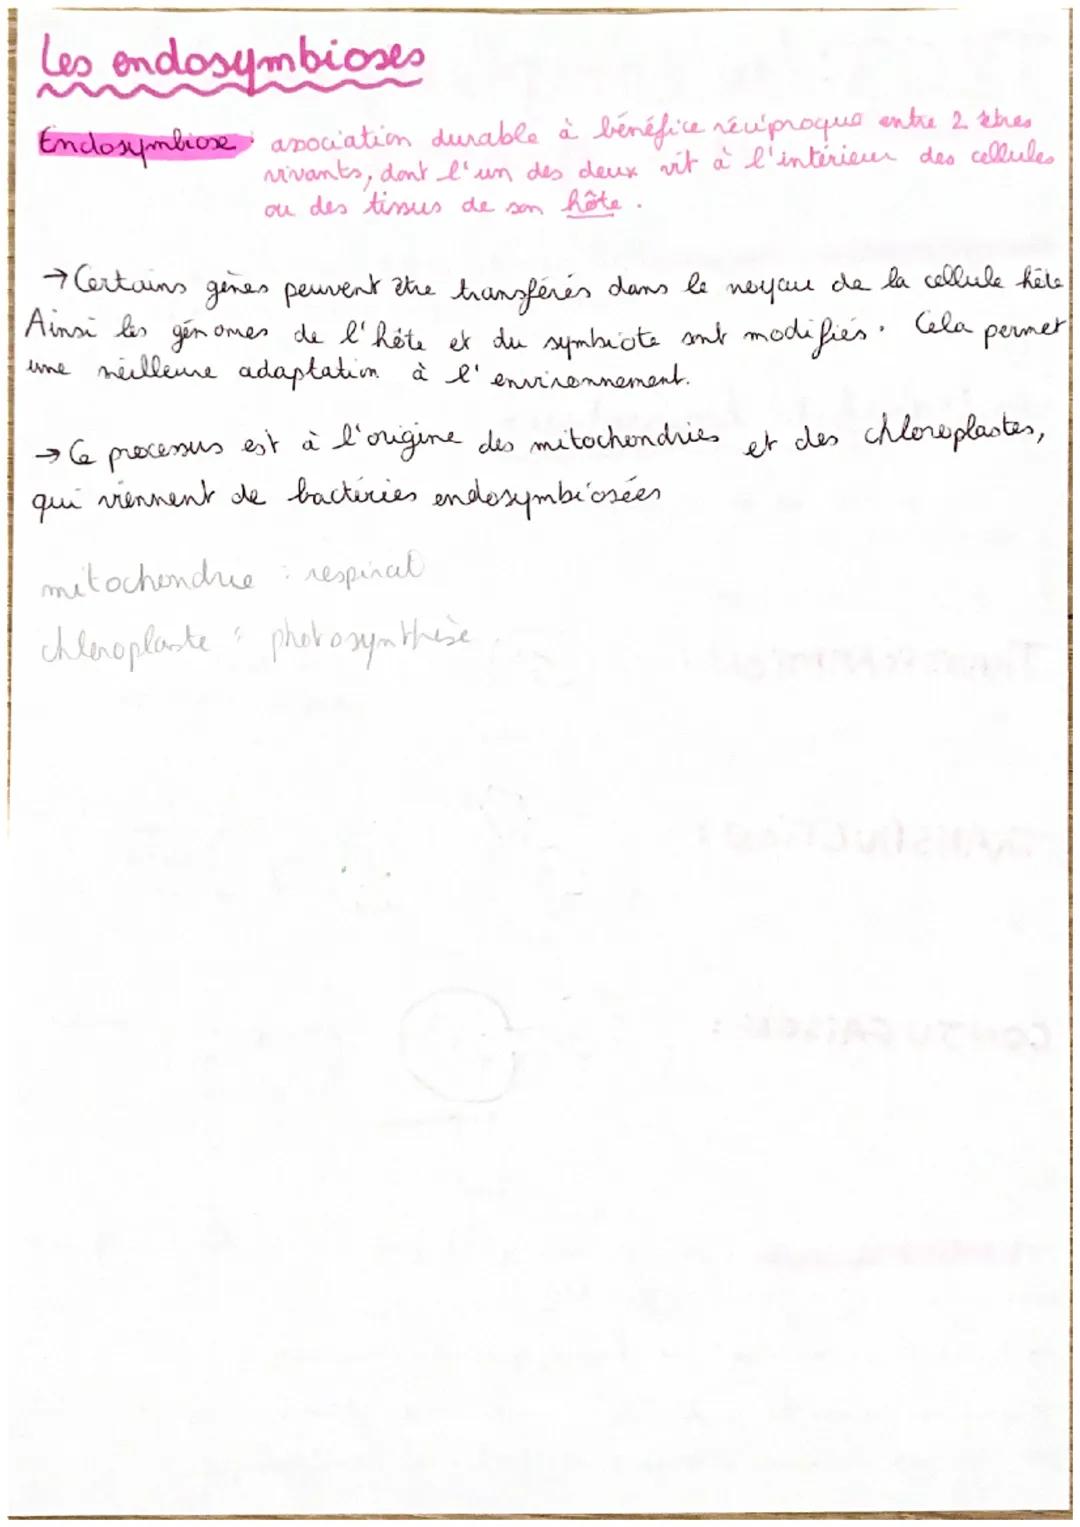 Les endosymbioses
Endosymbiose : association durable à bénéfice réciproque entre 2 êtres
vivants, dont l'un des deux vit à l'intérieur des cellules
ou des tissus de son hôte.
→ Certains gènes peuvent être transférés dans le noyau de la cellule hôte
Ainsi les génomes de l'hôte et du symbiote sont modifiés. Cela permet
une meilleure adaptation à l'environnement.
→ Ce processus est à l'origine des mitochondries et des chloroplastes,
qui viennent de bactéries endosymbiosées
mitochondrie : respirat
chloroplaste : photosynthèse.
TRANSDUCTION :
CONJUGAISON :